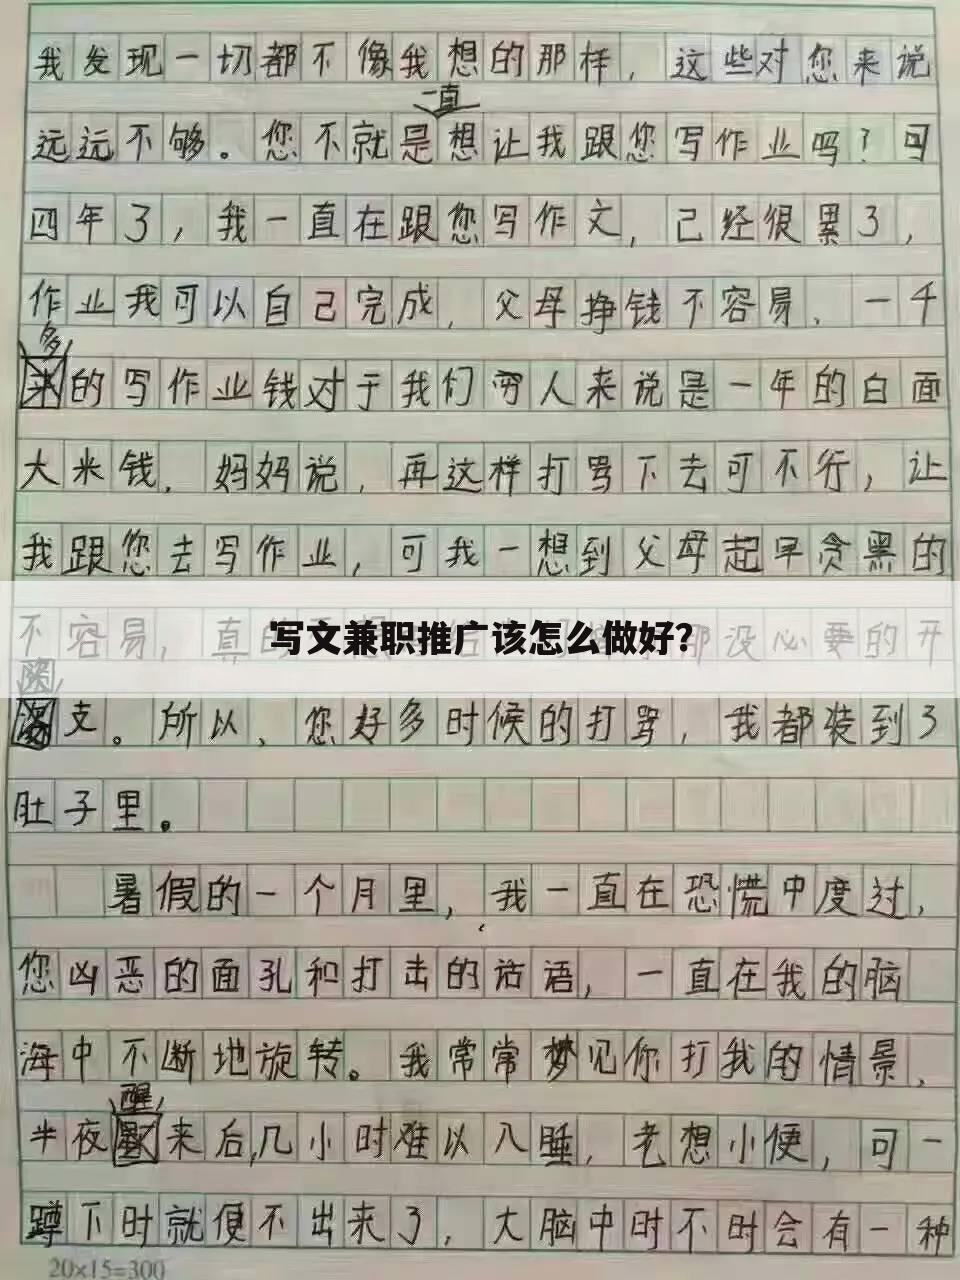 我发现一切都不像我想的那样，这些对您来说
一直
远远不够。您不就是想让我跟您写作业吗？可
四年了，我一直在跟您写作文，己经很累了，
作业我可以自己完成，父母挣钱不容易、一千
多
的写作业钱对于我们穷人来说是一年的白面
大米钱，妈妈说，再这样打骂下去可不行，让
我跟您去写作业，可我一想到父母起早贪黑的
不容易，真的
那没必要的开
写文兼职推广该怎么做好？
支。所以、您好多时候的打骂，我都装到了
肚子里。
暑假的一个月里，我一直在恐慌中度过，
您凶恶的面孔和打击的话语，一直在我的脑
海中不断地旋转。我常常梦见你打我的情景，
醒
半夜来后,几小时难以入睡，老想小便，可一
蹲下时就便不出来了，大脑中时不时会有一种
20×15=300